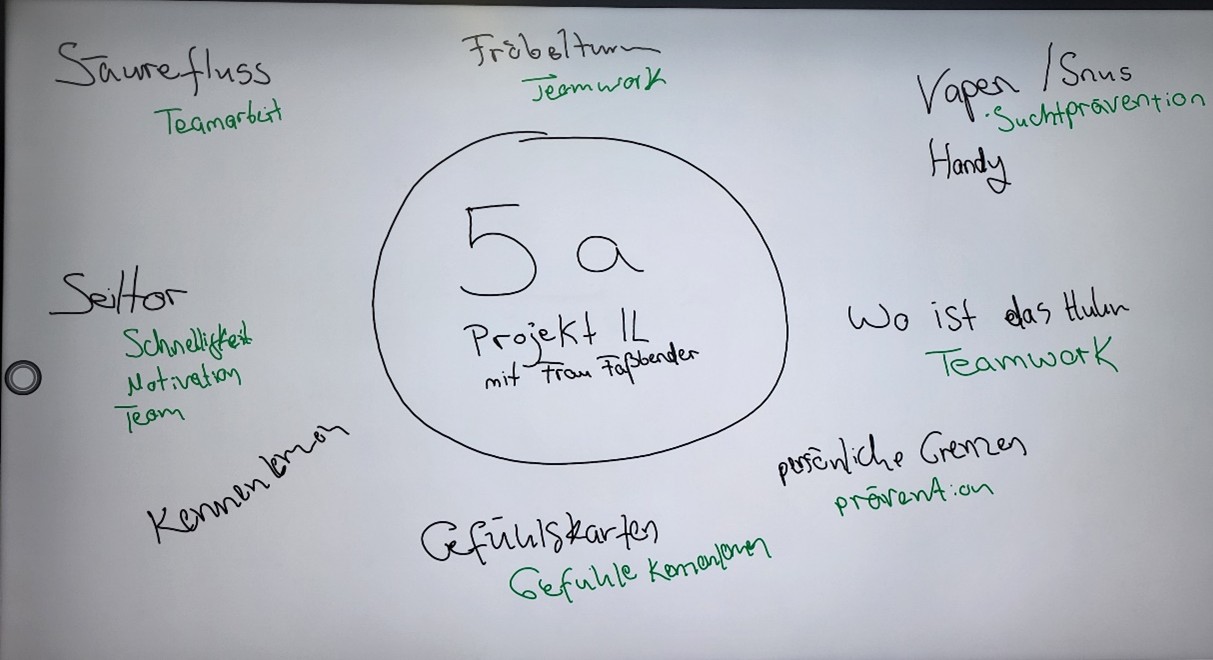 Säurefluss
Teamarbeit
Fröbelturm
Teamwork
Vapen / Snus
Suchtprävention
Handy
5a
Projekt IL
mit Frau Faßbender
Seiltor
Schnelligkeit
Motivation
Team
Wo ist das Huhn
Teamwork
Kennenlernen
persönliche Grenzen
prävention
Gefühlskarten
Gefühle Kennenlernen